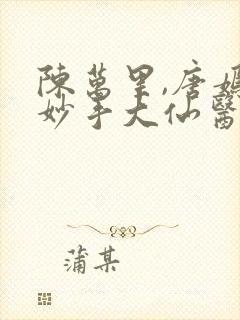 陳萬里,唐嫣
妙手大仙醫
蒲某